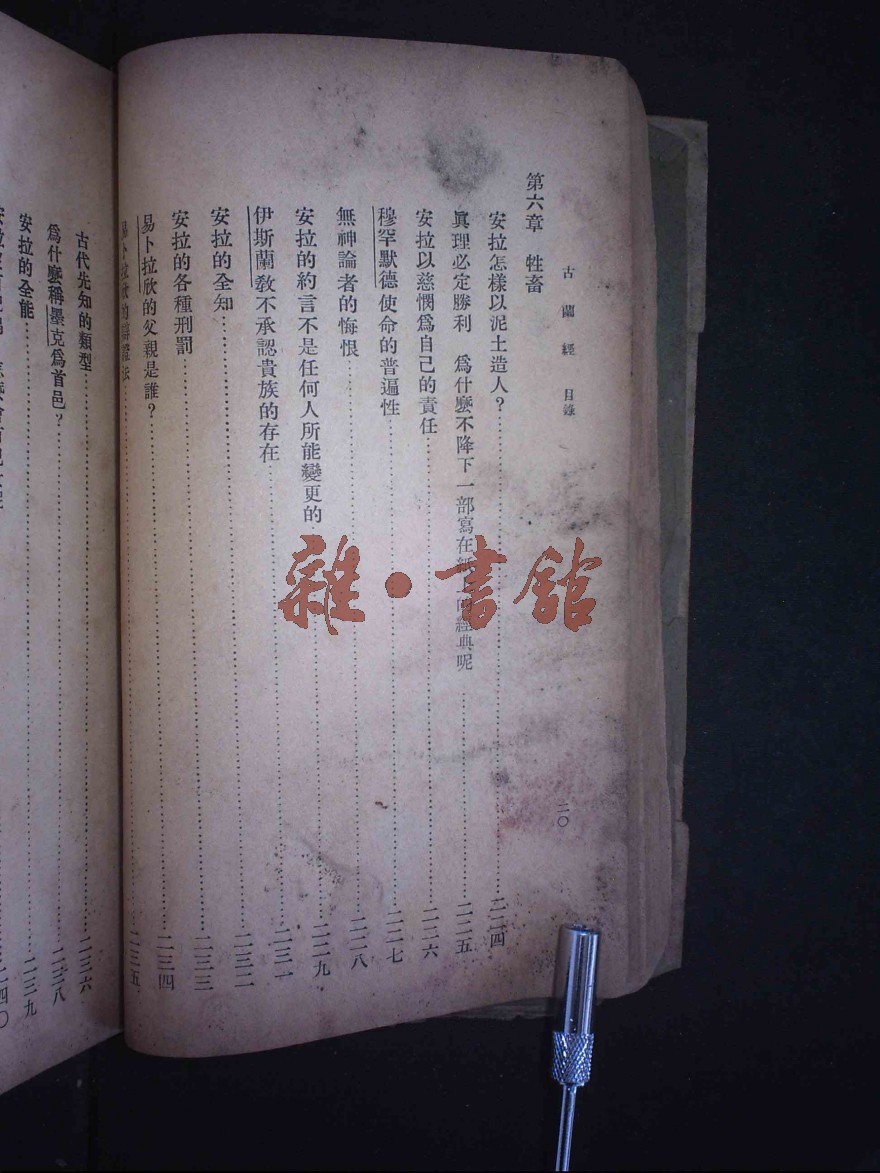 古蘭經　目錄
二〇
第六章　牲畜
安拉怎樣以泥土造人？二二四
眞理必定勝利　爲什麼不降下一部寫在紙上的經典呢二二五
安拉以慈憫爲自己的責任二二六
穆罕默德使命的普遍性二二七
無神論者的悔恨二二八
安拉的約言不是任何人所能變更的二二九
伊斯蘭敎不承認貴族的存在二三一
安拉的全知二三二
安拉的各種刑罰二三三
易卜拉欣的父親是誰？二三四
易卜拉欣的辯證法二三五
古代先知的類型二三六
爲什麼稱墨克爲首邑？二三八
安拉的全能二三九
二四〇
雜·書館